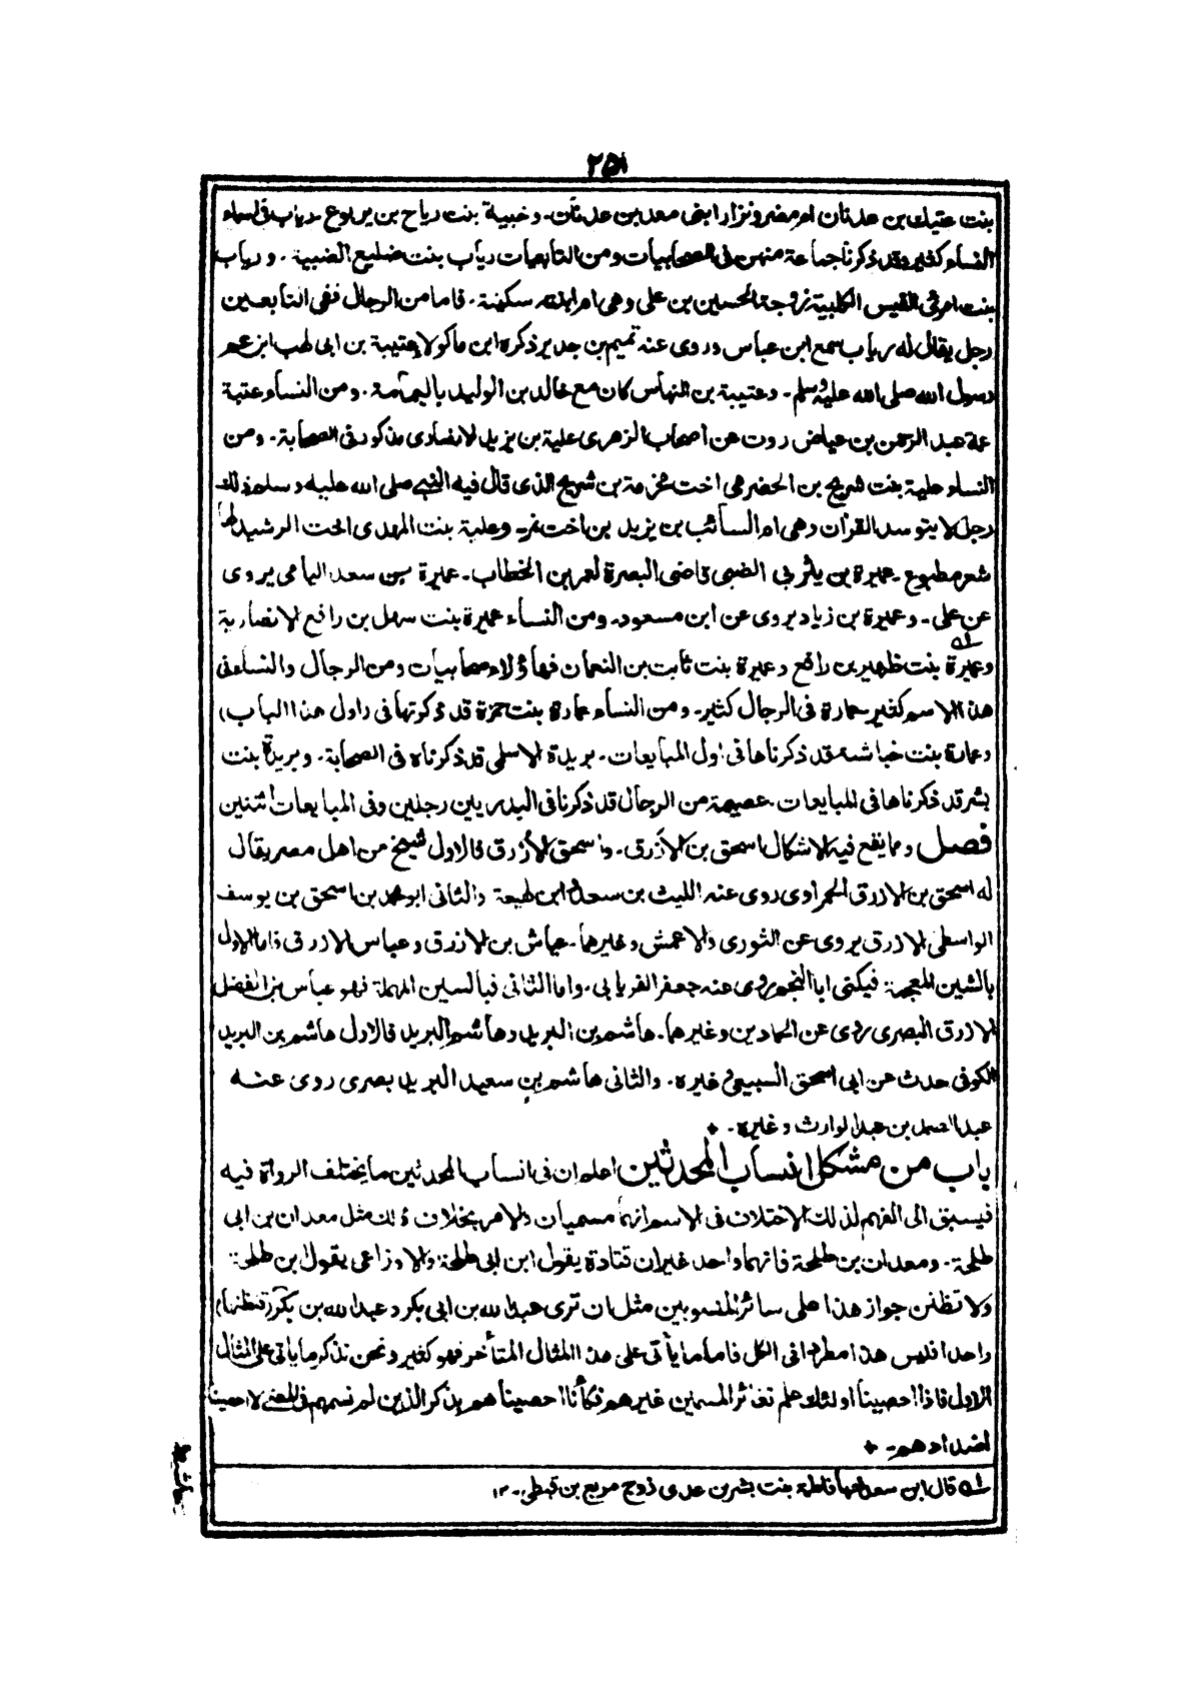 ٢٥١
بنت عتيك بن عدنان ام مضر ونزار ابنى معد بن عدنان۔ وخبيبة بنت رياح بن يربوع۔ رباب فى اسماء
النساء كثير وقد ذكرنا جماعة منهن فى الصحابيات ومن التابعيات رباب بنت ضليع الضبية۔ ورباب
بنت امرئ القيس الكلبية زوجة الحسين بن على وهى ام ابنته سكينة۔ فاما من الرجال ففى التابعين
رجل يقال له رباب سمع ابن عباس وروى عنه تميم بن جدير ذكره ابن ماكولا عتيبة بن ابى لهب ابن عم
رسول الله صلى الله عليه وسلم۔ وعتيبة بن النهاس كان مع خالد بن الوليد باليمامة۔ ومن النساء عتبة
عمة عبد الرحمن بن عياض روت عن اصحاب الزهرى علية بن يزيد الانصارى مذكور فى الصحابة۔ ومن
النساء علية بنت شريح بن الحضرمى اخت مخرمة بن شريح الذى قال فيه النبى صلى الله عليه وسلم ذلك
رجل لا يتوسد القرآن وهى ام السائب بن يزيد بن اخت نمر۔ وعلية بنت المهدى اخت الرشيد لها
شعر مطبوع۔ عميرة بن يثربى الضبى قاضى البصرة لعمر بن الخطاب۔ عميرة بن سعد اليامى يروى
عن على۔ وعميرة بن زياد يروى عن ابن مسعود۔ ومن النساء عميرة بنت سهل بن رافع الانصارية
وعميرة بنت ظهير بن رافع وعميرة بنت ثابت بن النعمان فهاؤلاء صحابيات ومن الرجال والنساء فى
هذا الاسم كغير عمارة فى الرجال كثير۔ ومن النساء عمارة بنت حمزة قد ذكرتها فى (اول هذا الباب)
وعمارة بنت خباشة قد ذكرناها فى اول المبايعات۔ بريدة الاسلمى قد ذكرناه فى الصحابة۔ وبريدة بنت
بشر قد ذكرناها فى المبايعات۔ عصيمة من الرجال قد ذكرنا فى البدريين رجلين وفى المبايعات اثنين
فصل ومما يقع فيه الاشكال اسحق بن الازرق۔ واسحق الازرق فالاول شيخ من اهل مصر يقال
له اسحق بن الازرق الحمراوى روى عنه الليث بن سعد وابن لهيعة والثانى ابو محمد بن اسحق بن يوسف
الواسطى الازرق يروى عن الثورى والاعمش وغيرهما۔ عياش بن الازرق وعباس الازرق فاما الاول
بالشين المعجمة فيكنى ابا النجم روى عنه جعفر الفريابى۔ واما الثانى فبالسين المهملة فهو عباس بن الفضل
الازرق البصرى روى عن الحمادين وغيرهما۔ هاشم بن البريد وهاشم البريد فالاول هاشم بن البريد
الكوفى حدث عن ابى اسحق السبيعى وغيره۔ والثانى هاشم بن سعيد البريد بصرى روى عنه
عبد الصمد بن عبد الوارث وغيره۔
باب من مشكل انساب المحدثين اعلم ان فى انساب المحدثين ما يختلف الرواة فيه
فيسبق الى الفهم لذلك الاختلاف فى الاسم انهما مسميان والامر بخلاف ذلك مثل معدان بن ابى
طلحة۔ ومعدان بن طلحة فانهما واحد غير ان قتادة يقول ابن ابى طلحة والاوزاعى يقول ابن طلحة
ولا تظنن جواز هذا على سائر المنسوبين مثل ان ترى عبد الله بن ابى بكر وعبد الله بن بكر (فتظنهما)
واحدا فليس هذا مطردا فى الكل فاما ما يأتى على هذا المثال المتأخر فهو كغير ونحن نذكر ما يأتى على المثال
الاول فاذا احصينا اولئك علم تغائر المسمين غيرهم فكأنا احصيناهم بذكر الذين لم نسمهم فى المعنى لاحصينا
اضدادهم۔
له قال ابن سعد امها فاطمة بنت بشر بن عدى زوج مربع بن قبطى۔ ١٢
حاشية